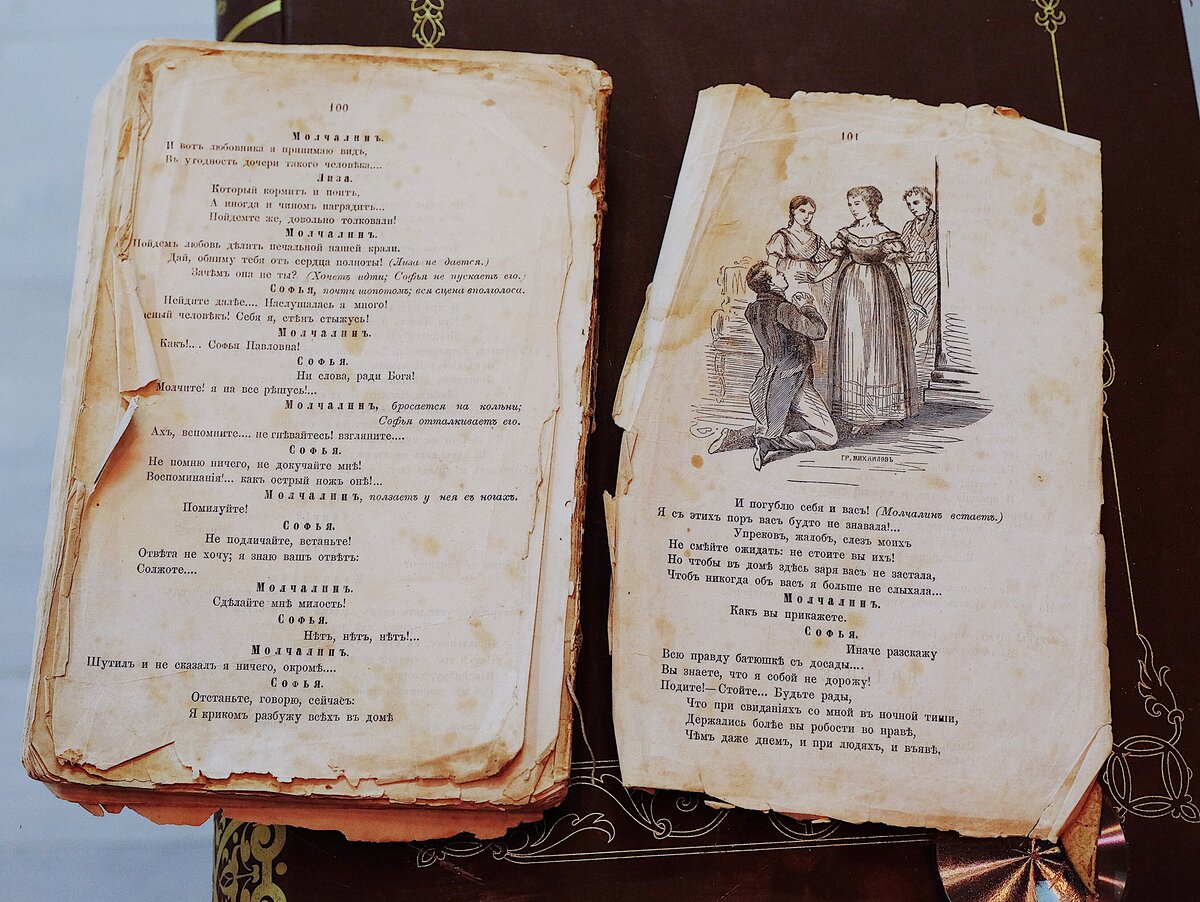 100
Молчалинъ.
И вотъ любовника я принимаю видъ,
Въ угодность дочери такого человѣка....
Лиза.
Который кормитъ и поитъ,
А иногда и чиномъ наградитъ...
Пойдемте же, довольно толковали!
Молчалинъ.
Пойдемъ любовь дѣлить печальной нашей крали.
Дай, обниму тебя отъ сердца полноты! (Лиза не дается.)
Зачѣмъ она не ты? (Хочетъ идти; Софья не пускаетъ его.)
Софья, почти шопотомъ; вся сцена вполголоса.
Нейдите далѣе.... Наслушалась я много!
сный человѣкъ! Себя я, стѣнъ стыжусь!
Молчалинъ.
Какъ!.... Софья Павловна!
Софья.
Ни слова, ради Бога!
Молчите! я на все рѣшусь!...
Молчалинъ, бросается на колѣни;
Софья отталкиваетъ его.
Ахъ, вспомните.... не гнѣвайтесь! взгляните....
Софья.
Не помню ничего, не докучайте мнѣ!
Воспоминанія!... какъ острый ножъ онѣ!...
Молчалинъ, ползаетъ у нея въ ногахъ.
Помилуйте!
Софья.
Не подличайте, встаньте!
Отвѣта не хочу; я знаю вашъ отвѣтъ:
Солжоте....
Молчалинъ.
Сдѣлайте мнѣ милость!
Софья.
Нѣтъ, нѣтъ, нѣтъ!...
Молчалинъ.
Шутилъ и не сказалъ я ничего, окромѣ....
Софья.
Отстаньте, говорю, сейчасъ:
Я крикомъ разбужу всѣхъ въ домѣ
101
ГР. МИХАИЛОВЪ
И погублю себя и васъ! (Молчалинъ встаетъ.)
Я съ этихъ поръ васъ будто не знавала!...
Упрековъ, жалобъ, слезъ моихъ
Не смѣйте ожидать: не стоите вы ихъ!
Но чтобы въ домѣ здѣсь заря васъ не застала,
Чтобъ никогда объ васъ я больше не слыхала...
Молчалинъ.
Какъ вы прикажете.
Софья.
Иначе разскажу
Всю правду батюшкѣ съ досады....
Вы знаете, что я собой не дорожу!
Подите!—Стойте... Будьте рады,
Что при свиданіяхъ со мной въ ночной тиши,
Держались болѣе вы робости во нравѣ,
Чѣмъ даже днемъ, и при людяхъ, и въявѣ,